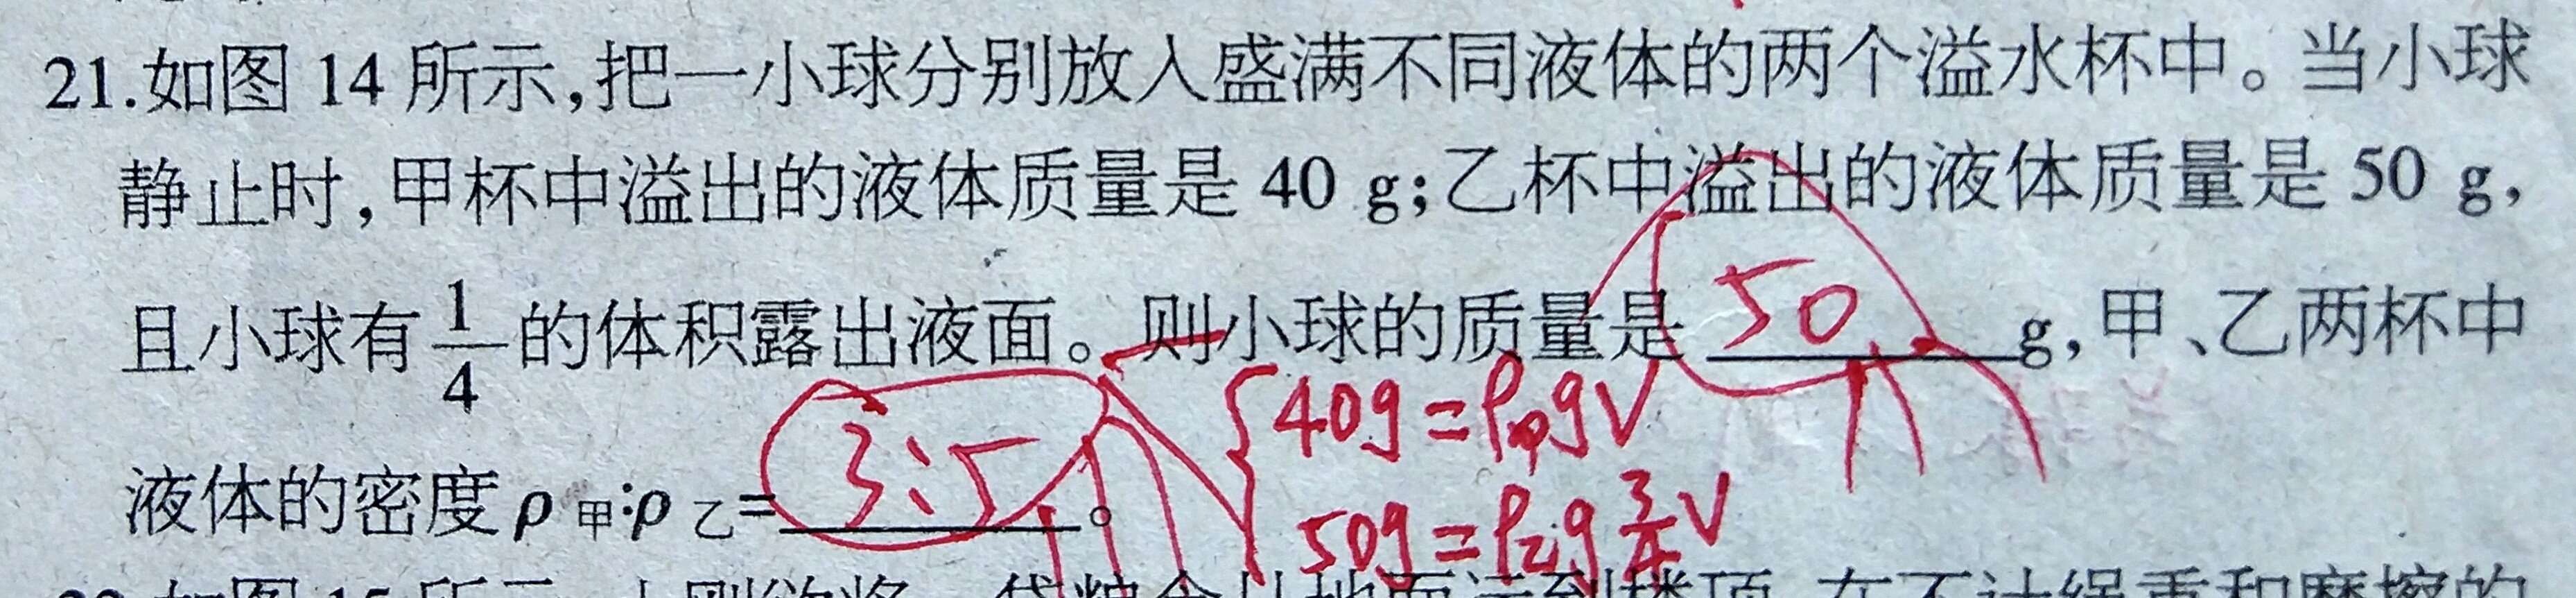 21.如图 14 所示,把一小球分别放入盛满不同液体的两个溢水杯中。当小球
静止时,甲杯中溢出的液体质量是 40 g;乙杯中溢出的液体质量是 50 g,
且小球有 1/4 的体积露出液面。则小球的质量是 50 g,甲、乙两杯中
40g=ρ甲gV
液体的密度 ρ甲:ρ乙= 3:5 。
50g=ρ乙g 3/4 V